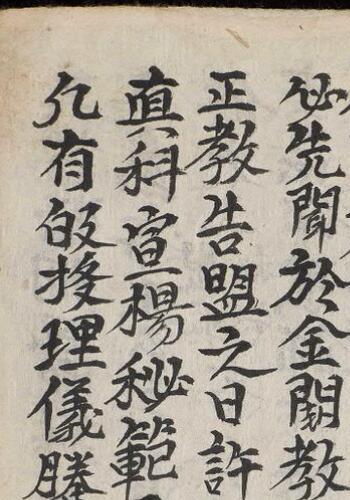 必先聞於金闕教
正教告盟之日許
真科宣楊秘範
凡有皈投理儀勝